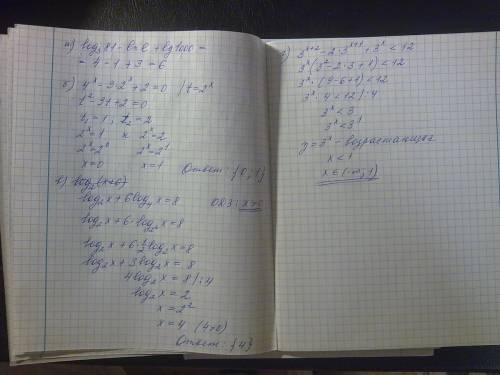 а) log₃81 - ln e + lg1000 =
= 4 - 1 + 3 = 6
б) 4ˣ - 3·2ˣ + 2 = 0 | t = 2ˣ
t² - 3t + 2 = 0
t₁ = 1; t₂ = 2
2ˣ = 1 и 2ˣ = 2
2ˣ = 2⁰ 2ˣ = 2¹
x = 0 x = 1
Ответ: {0; 1}
в)
log₂x + 6log₄x = 8 ОДЗ: x > 0
log₂x + 6·log₂²x = 8
log₂x + 6·½log₂x = 8
log₂x + 3log₂x = 8
4log₂x = 8 | :4
log₂x = 2
x = 2²
x = 4 (4>0)
Ответ: {4}
3ˣ⁺² - 2·3ˣ⁺¹ + 3ˣ < 12
3ˣ(3² - 2·3 + 1) < 12
3ˣ·(9 - 6 + 1) < 12
3ˣ·4 < 12 | :4
3ˣ < 3
3ˣ < 3¹
y = 3ˣ - возрастающая
x < 1
x ∈ (-∞; 1)